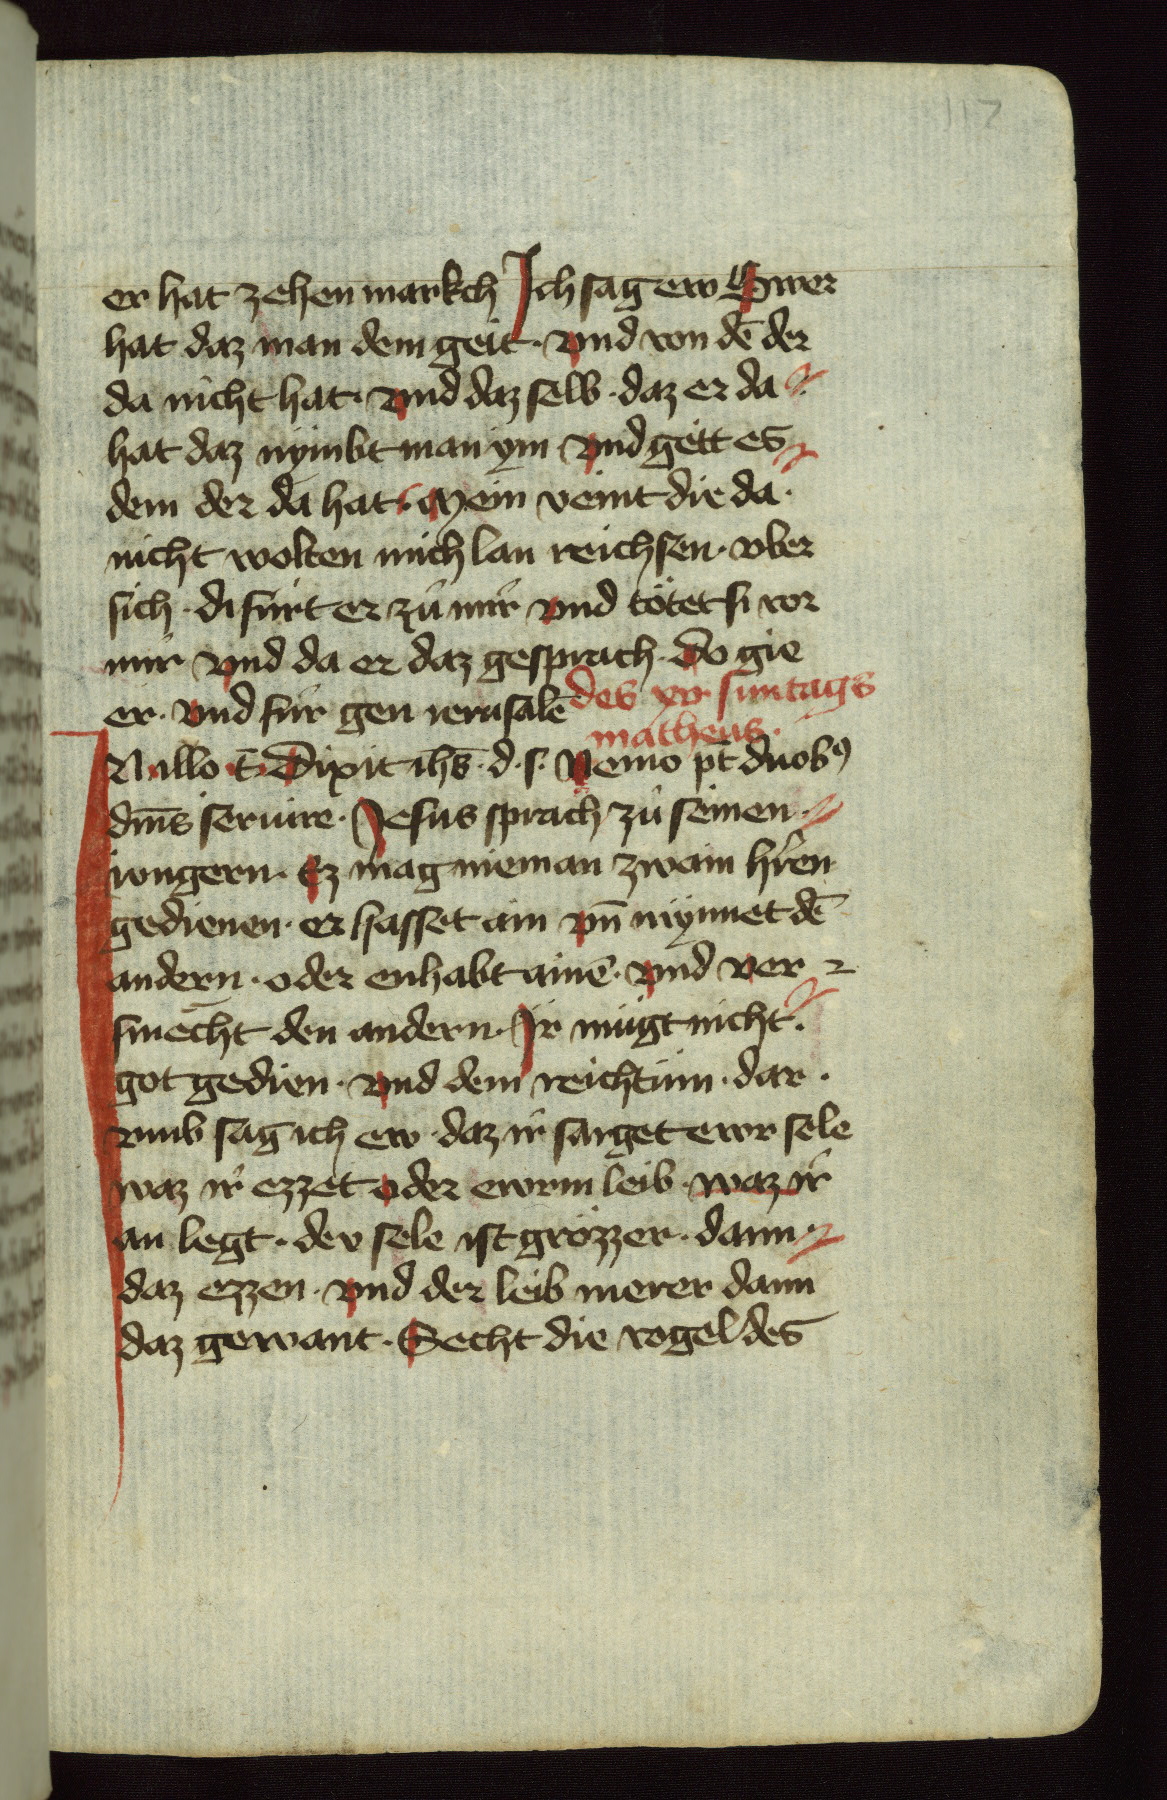 117
er hat zehen markch Ich sag ew Swer
hat daz man dem geit · vnd von dē der
da nicht hat · vnd daz selb · daz er da
hat daz nÿmbt man ym vnd geitt es
dem der da hat · Mein veint die da ·
nicht wolten mich lan reichsen · vber
sich · di fürt er zů mir vnd tötet si vor
mir vnd da er daz gesprach · do gie
er · vnd für gen ierusalē des xv suntags
matheus ·
Nullo t̄ Dixit ihs̄ · d · s · Nemo pt̄ duobꝯ
dn̄is seruire · Jesus sprach zů seinen ·
iungern · Ez mag nieman zwain hr̄en
gedienen · er hasset ain vn̄ mynnet dē
andern · oder enhabt ainē · vnd ver
smecht den andern · Ir mügt nicht ·
got gedien · vnd dem reichtüm · dar ·
vmb sag ich ew · daz ir sarget ewr sele
waz ir ezzet oder ewrm leib · waz ir
an legt · dev sele ist grözzer · dann
daz ezzen · vnd der leib merer dann
daz gewant · Secht die vogel des